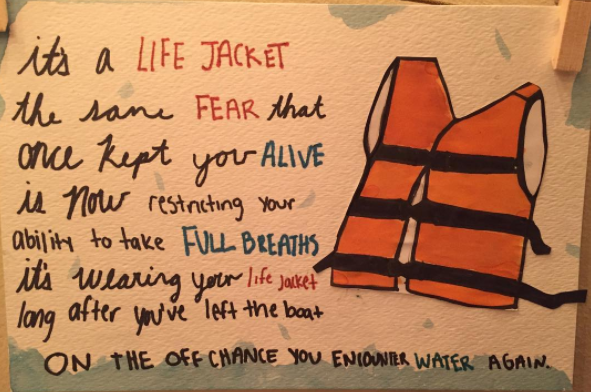 it's a LIFE JACKET
the same FEAR that
once kept you ALIVE
is now restricting your
ability to take FULL BREATHS
it's wearing your life jacket
long after you've left the boat
ON THE OFF CHANCE YOU ENCOUNTER WATER AGAIN.